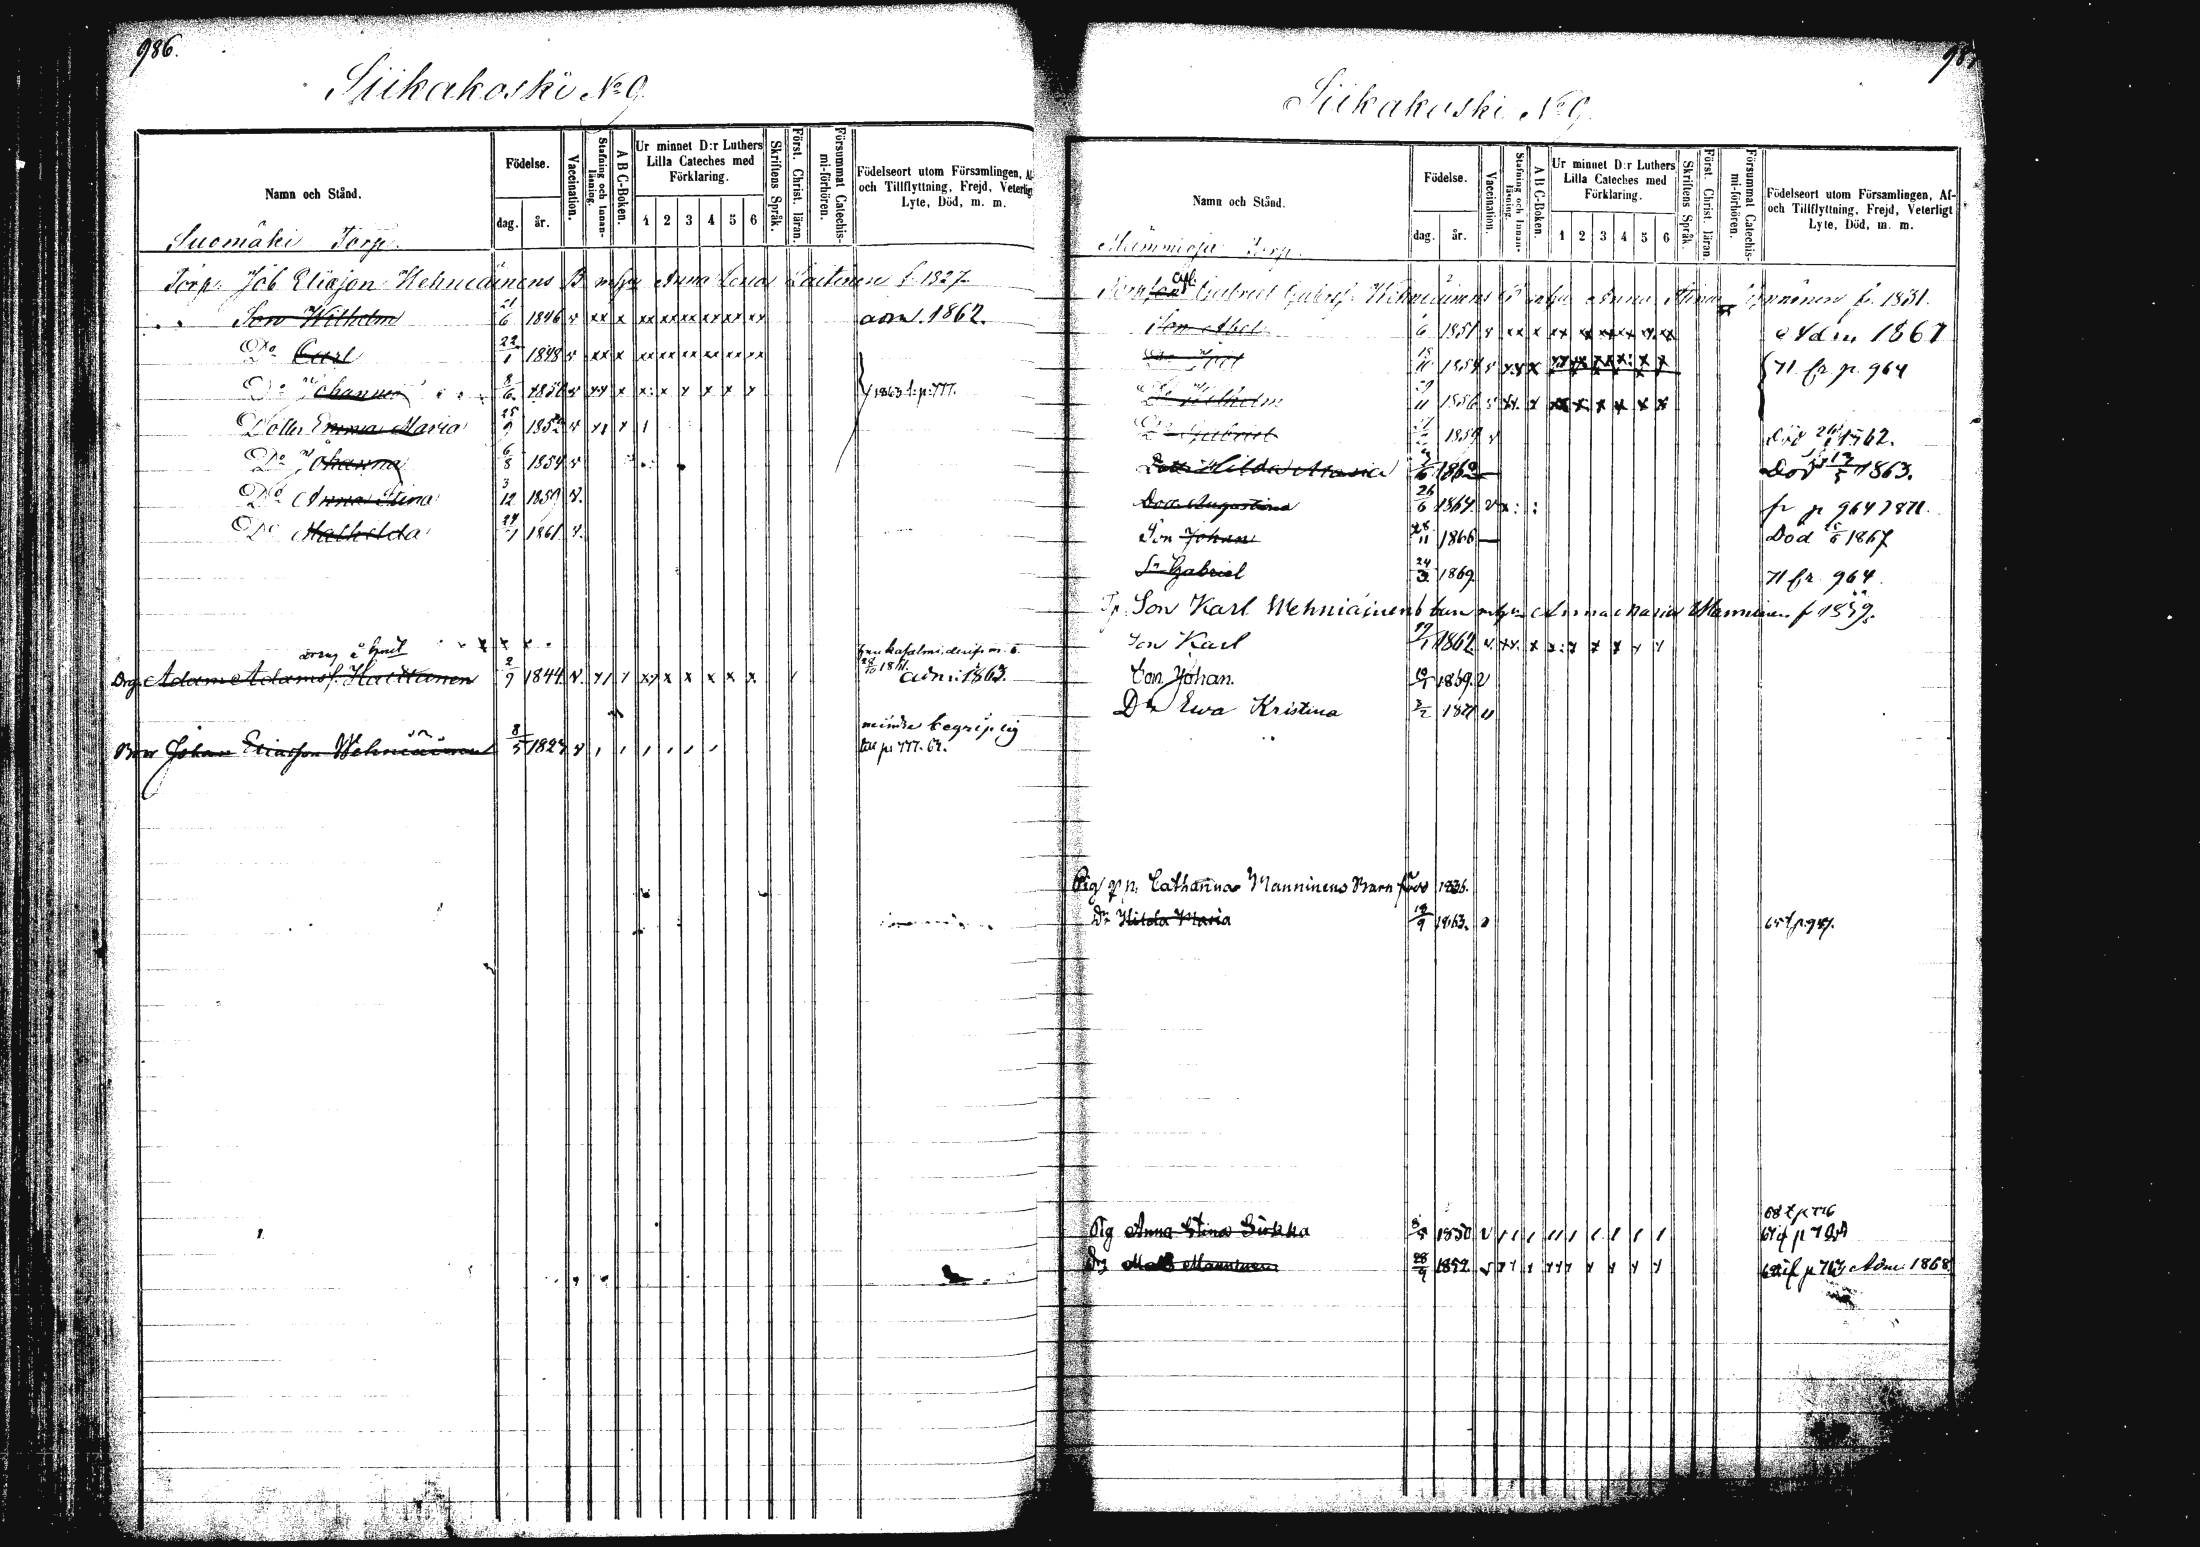 986.
Siikakoski No 9.
Namn och Stånd.
Födelse.
dag.
år.
Vaccination.
Stafning och Innanläsning.
A B C-Boken.
Ur minnet D:r Luthers
Lilla Cateches med
Förklaring.
1 2 3 4 5 6
Skriftens Språk.
Först. Christ. läran.
Försummat Catechismi-förhören.
Födelseort utom Församlingen,
och Tillflyttning, Frejd, Veterlig
Lyte, Död, m. m.
Suomäki Torp.
Torp. Job Eliasson Wehniäinens B. m hu Anna Lena Laitinen f. 1827
Son Wilhelm 21/6 1846 v xx x xx xx xx xx xx xx adm. 1862.
Do Carl 22/1 1848 v xx x xx xx xx xx xx xx
Do Johannes 8/6 1850 v xx x x x x x x x 1863 t. p. 777.
Dotter Emma Maria 25/9 1852 v
Do Johanna 6/8 1854 v
Do Anna Stina 3/12 1859 v.
Do Mathilda 24/1 1861 v.
Drg. Adam Adamsf. Hattanen 2/9 1844 v. adm. 1863.
mindre begriplig
Johan Eliasson Wehniäinen 8/5 1827 v till p. 777. 62.
Siikakoski No 9.
Namn och Stånd.
Födelse.
dag.
år.
Vaccination.
Stafning och Innanläsning.
A B C-Boken.
Ur minnet D:r Luthers
Lilla Cateches med
Förklaring.
1 2 3 4 5 6
Skriftens Språk.
Först. Christ. läran.
Försummat Catechismi-förhören.
Födelseort utom Församlingen, Af-
och Tillflyttning, Frejd, Veterligt
Lyte, Död, m. m.
Torp.
Gabriel Gabrielf. Wehniäinens B m hu Anna Stina f. 1831.
Son Abel 6 1851 v xx x Adm 1867
Do Joel 1854 v xx x 71 fr. p. 964
Do Wilhelm 11 1856 v xx. x
Do Gabriel 1859 v Död 1862.
Dott. Hilda Maria 6 1862 Död 1863.
Dott. Augustina 26/6 1864 v fr p 964 1871.
Son Johan 28/11 1866 Död 1867
Sn Gabriel 24/3 1869 71 fr. 964.
Tp. Son Karl Wehniäinens barn m hu Anna Maria Manninen f 1839.
Son Karl 1862 v xx x
Son Johan. 1869. v
Dr Ewa Kristina 3/2 1871 v
Pig Catharina Manninens Barn född 1836.
Dr Hilda Maria 18/9 1863. v
68 t p 776
Pig Anna Stina Sirkka 1850 v
Drg Mats Manninen 28/9 1852 v Adm 1868.